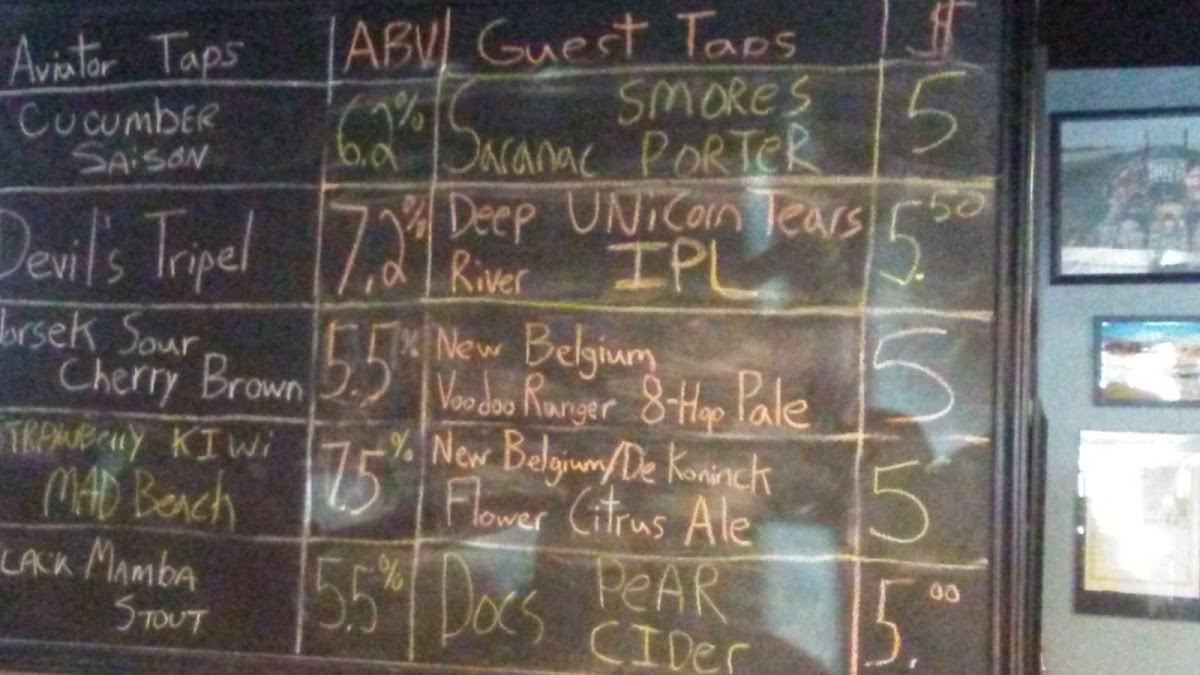 Aviator Taps ABV Guest Taps $
CUCUMBER
SAISON
6.2%
SMORES
Saranac PORTER
5
Devil's Tripel
7.2%
Deep UNiCorn Tears
River IPL
5.50
orsek Sour
Cherry Brown
5.5%
New Belgium
Voodoo Ranger 8-Hop Pale
5
TRAWBerry KIWi
MAD Beach
7.5%
New Belgium/De Koninck
Flower Citrus Ale
5
LACK MAMBA
STOUT
5.5%
DOCS PeAR
CIDer
5.00